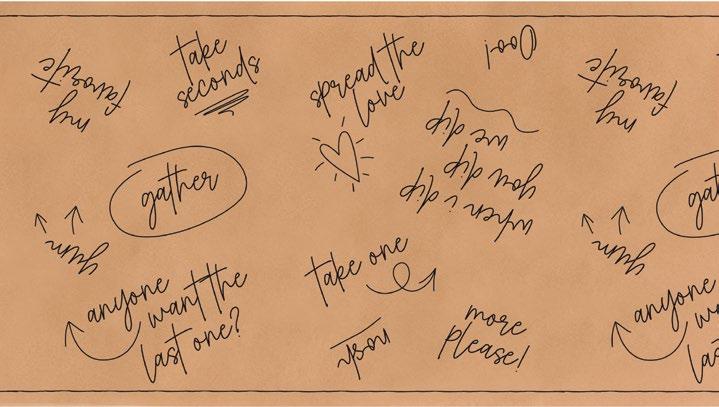 take
seconds
spread the
love
Ooo!
my
favorite
when i dip
you dip
we dip
gather
yum
take one
anyone
want the
last one?
nosh
more
please!
my
favorite
gat
yum
anyone
wa
last